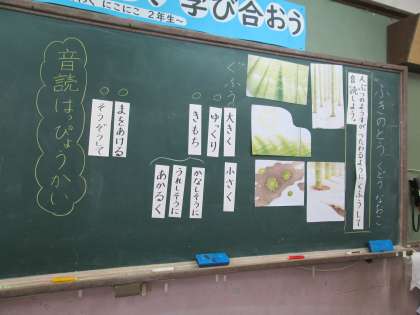 学び合おう
にこにこ 2年生～
ふきのとう くどうなおこ
人ぶつのようすがつたわるようにくふうして
音読しよう。
くふう
大きく 小さく
ゆっくり
きもち
かなしそうに
うれしそうに
あかるく
まをあける
そうぞうして
音読はっぴょうかい